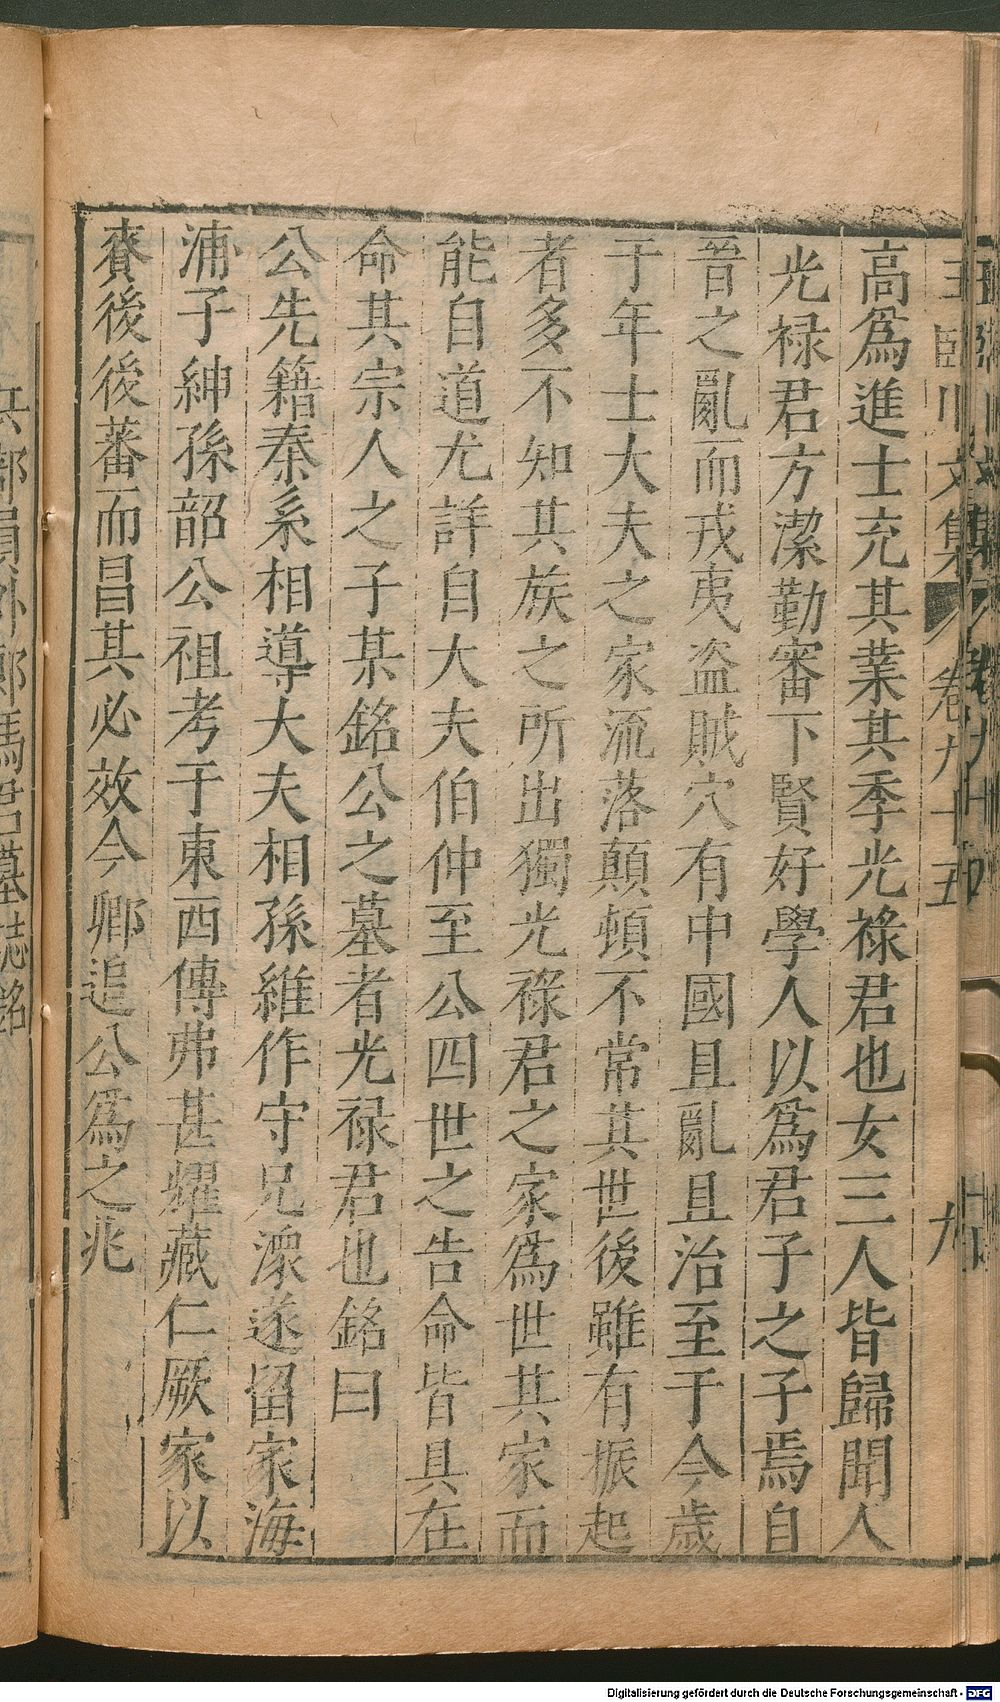 高爲進士充其業其季光祿君也女三人皆歸聞人
光禄君方潔勤審下賢好學人以爲君子之子焉自
晉之亂而戎夷盗賊穴有中國且亂且治至于今歲
于年士大夫之家流落顛頓不常其世後雖有振起
者多不知其族之所出獨光祿君之家爲世其家而
能自道尤詳自大夫伯仲至公四世之告命皆具在
命其宗人之子某銘公之墓者光禄君也銘曰
公先籍秦系相導大夫相孫維作守兄澴遂留家海
浦子紳孫韶公祖考于東西傳弗甚耀藏仁厥家以
賚後後蕃而昌其必效今卿追公爲之兆
文集 卷九十五 九
兵部員外郎馬君墓誌銘
Digitalisierung gefördert durch die Deutsche Forschungsgemeinschaft - DFG